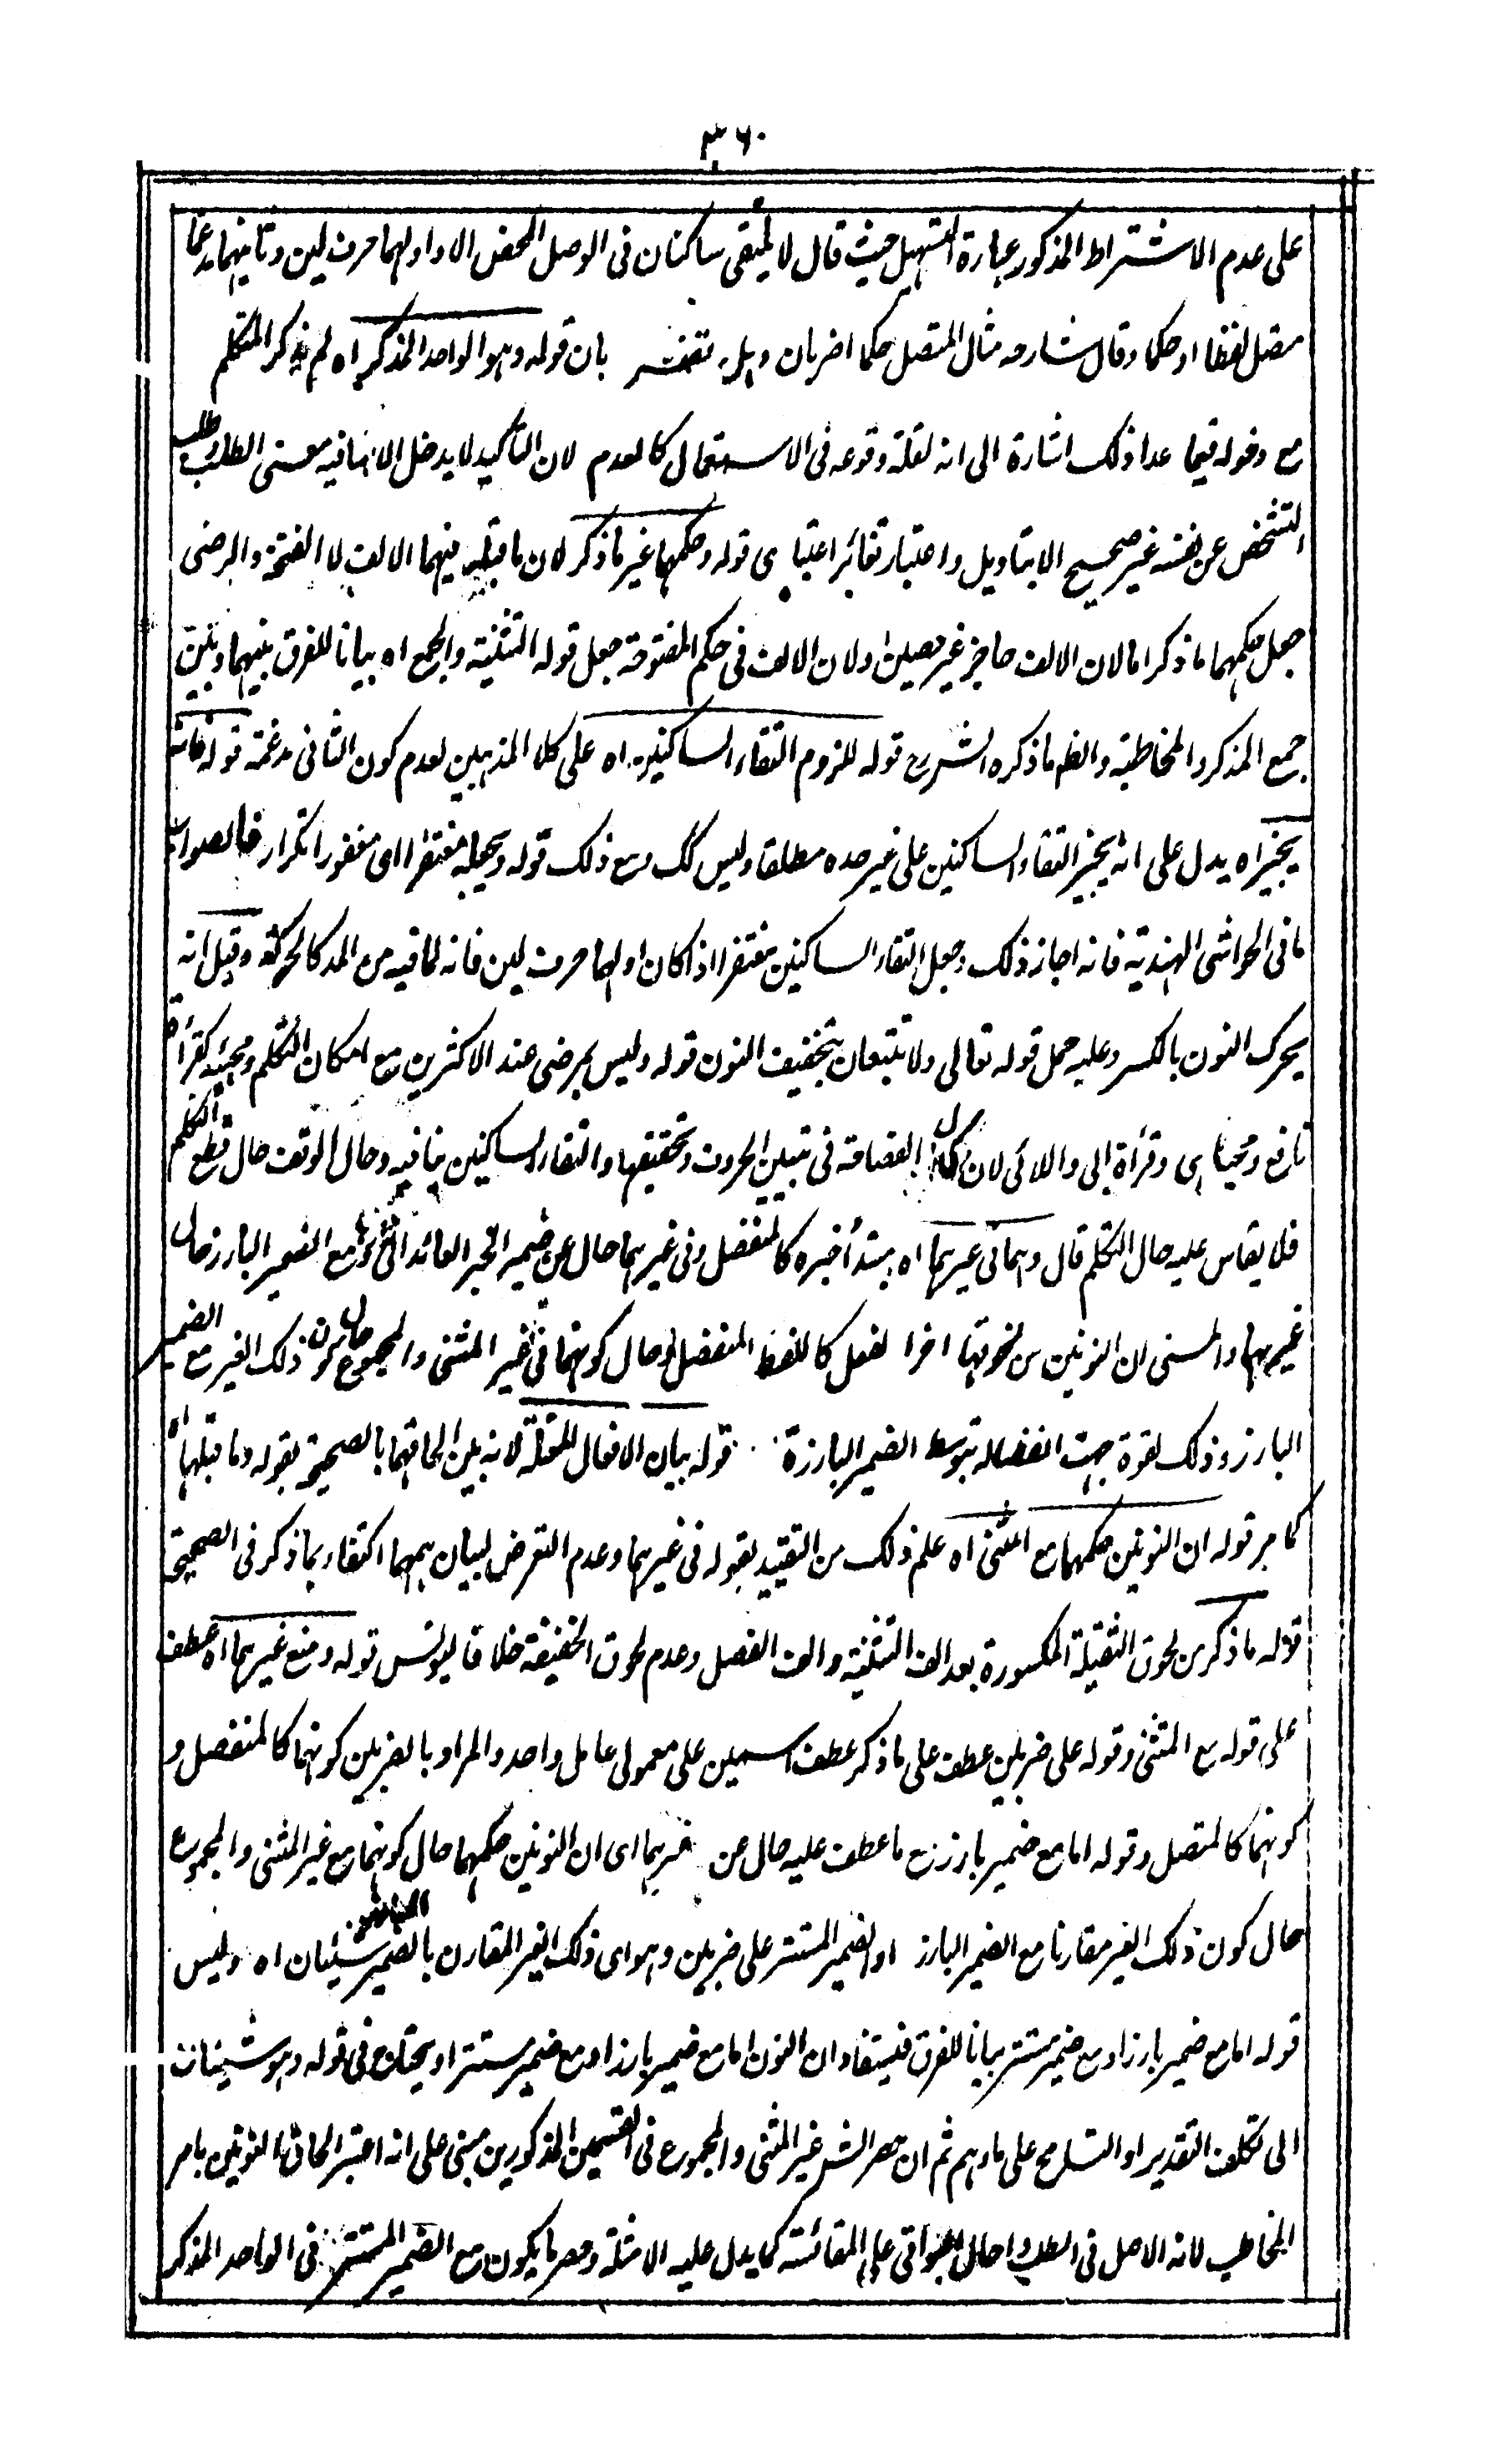 ٣٦٠
على عدم الاشتراط المذكور عبارة التسهيل حيث قال لا يلتقى ساكنان فى الوصل المحض الا واولهما حرف لين وثانيهما مدغما
متصل لفظا او حكما وقال شارحه مثال المتصل حكما اضربان وهل بان قوله وهو الواحد المذكر اه لم يذكر المتكلم
مع دخوله فيما عدا ذلك اشارة الى انه لقلة وقوعه فى الاستعمال كالعدم لان التأكيد لا يدخل الا ما فيه معنى الطلب وطلب
الشخص عن نفسه غير صحيح الا بتاويل واعتبار تغائر اعتبارى قوله وحكمها غير ما ذكر لان ما قبلها فيهما الالف لا الفتحة والرضى
جعل حكمهما ما ذكر اما لان الالف حاجز غير حصين او لان الالف فى حكم المفتوحة جعل قوله التثنية والجمع اه بيانا للفرق بينهما وبين
جمع المذكر والمخاطبة والظ ما ذكره الشرح قوله للزوم التقاء الساكنين اه على كلا المذهبين لعدم كون الثانى مدغمة قوله فانه
يجيز اه يدل على انه يجيز التقاء الساكنين على غير حده مطلقا وليس كك ومع ذلك قوله ويجعله مغتفرا اى مغفورا تكرار فالصواب
ما فى الحواشى الهندية فانه اجاز ذلك وجعل التقاء الساكنين مغتفرا اذا كان اولهما حرف لين فانه لما فيه من المد كالحركة وقيل انه
يحرك النون بالكسر وعليه حمل قوله تعالى ولا تتبعان بتخفيف النون قوله وليس بمرضى عند الاكثرين مع امكان التكلم ومجيئه كقرأة
نافع ومحياى وقرأة ابى واللائى لان كمال الفصاحة فى تبيين الحروف وتحقيقها والتقاء الساكنين ينافيه وحال الوقف حال قطع التكلم
فلا يقاس عليه حال التكلم قال وهما فى غيرهما اه مبتدأ خبره كالمنفصل وفى غيرهما حال عن ضمير الخبر العائد الى مع الضمير البارز حال
غيرهما والمعنى ان النونين من لحوقهما اخر الفعل كاللفظ المنفصل فى حال كونهما فى غير المثنى والمجموع حال كون ذلك الغير مع الضمير
البارز وذلك لقوة جهت انفصاله بتوسط الضمير البارزة قوله بيان الافعال المعتلة لانه بين الحاقهما بالصحيح بقوله وما قبلها اه
كما مر قوله ان النونين حكمهما مع المثنى اه علم ذلك من التقييد بقوله فى غيرهما وعدم التعرض لبيان حكمهما اكتفاء بما ذكر فى الصحيح
قوله ما ذكر من لحوق الثقيلة المكسورة بعد الف التثنية والف الفصل وعدم لحوق الخفيفة خلافا ليونس قوله ومع غيرهما اه عطف
على قوله مع المثنى وقوله على ضربين عطف على ما ذكر عطف اسمين على معمولى عامل واحد والمراد بالضربين كونهما كالمنفصل و
كونهما كالمتصل وقوله اما مع ضمير بارز مع ما عطف عليه حال عن غيرهما اى ان النونين حكمهما حال كونهما مع غير المثنى والمجموع
حال كون ذلك الغير مقارنا مع الضمير البارز او الضمير المستتر على ضربين وهو اى ذلك الغير المقارن بالضمير شيئان اه وليس
قوله اما مع ضمير بارز او مع ضمير مستتر بيانا للفرق فيستفاد ان النون اما مع ضمير بارز او مع ضمير مستتر او يحتاج فى قوله وهو شيئان
الى تكلف التقدير او التسامح على ما وهم ثم ان حصر الشرح غير المثنى والمجموع فى القسمين المذكورين مبنى على انه اعتبر الحاق النونين بامر
المخاطب لانه الاصل فى الطلب واحال البواقى على المقائسة كما يدل عليه الامثلة وحصر ما يكون مع الضمير المستتر فى الواحد المذكر